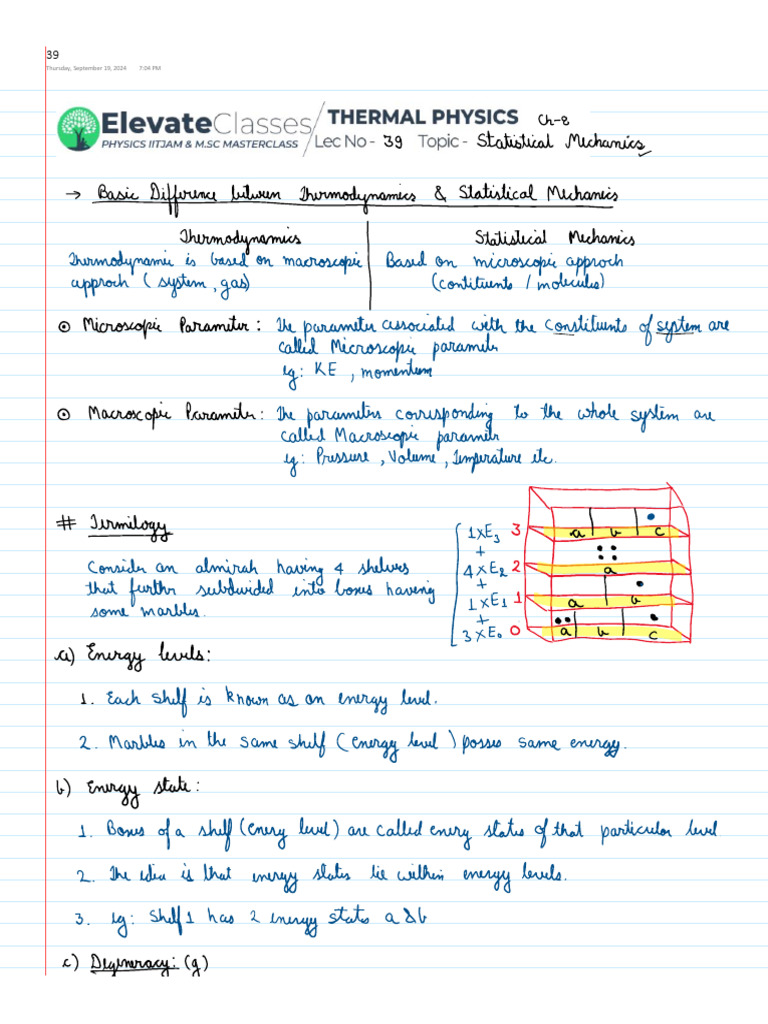 39
Thursday, September 19, 2024 7:04 PM
ElevateClasses
PHYSICS IITJAM & M.SC MASTERCLASS
THERMAL PHYSICS Ch-8
Lec No - 39 Topic - Statistical Mechanics
→ Basic Difference between Thermodynamics & Statistical Mechanics
Thermodynamics
Thermodynamic is based on macroscopic
approch (system, gas)
Statistical Mechanics
Based on microscopic approch
(contituents / molecules)
⊙ Microscopic Parameter: The parameter associated with the Constituents of system are
called Microscopic parameter
eg: KE, momentum
⊙ Macroscopic Parameter: The parameters corresponding to the whole system are
called Macroscopic parameter
eg: Pressure, Volume, Temperature etc.
# Termilogy
Consider an almirah having 4 shelves
that furthr subdivided into boxes having
some marbles.
1×E₃ 3 a b c
+
4×E₂ 2 a
+
1×E₁ 1 a b
+
3×E₀ 0 a b c
a) Energy levels:
1. Each shelf is known as an energy level.
2. Marbles in the same shelf (energy level) posses same energy.
b) Energy state:
1. Boxes of a shelf (enery level) are called enery states of that particular level
2. The idea is that energy states lie within energy levels.
3. eg: Shelf 1 has 2 energy states a & b
c) Degeneracy: (g)